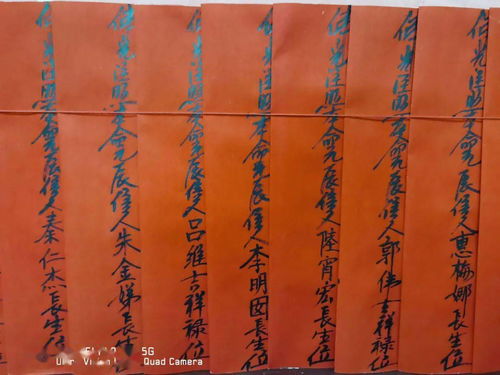 佛光注照本命元辰信人惠梅娜長生位
佛光注照本命元辰信人郭偉吉祥祿位
佛光注照本命元辰信人陸宵宏長生位
佛光注照本命元辰信人李明圀長生位
佛光注照本命元辰信人呂維吉祥祿位
佛光注照本命元辰信人朱金娣長生
佛光注照本命元辰信人秦仁杰長生位
5G
Quad Camera